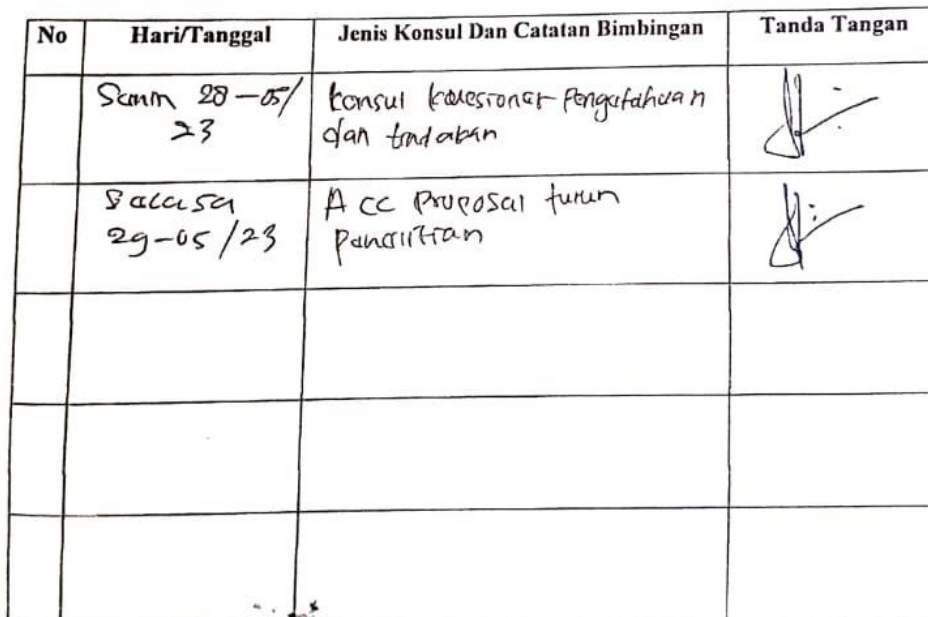 No Hari/Tanggal Jenis Konsul Dan Catatan Bimbingan Tanda Tangan
Senin 28-05/ konsul kuesioner Pengetahuan
23 dan tindakan
Selasa Acc Proposal turun
29-05/23 Penelitian